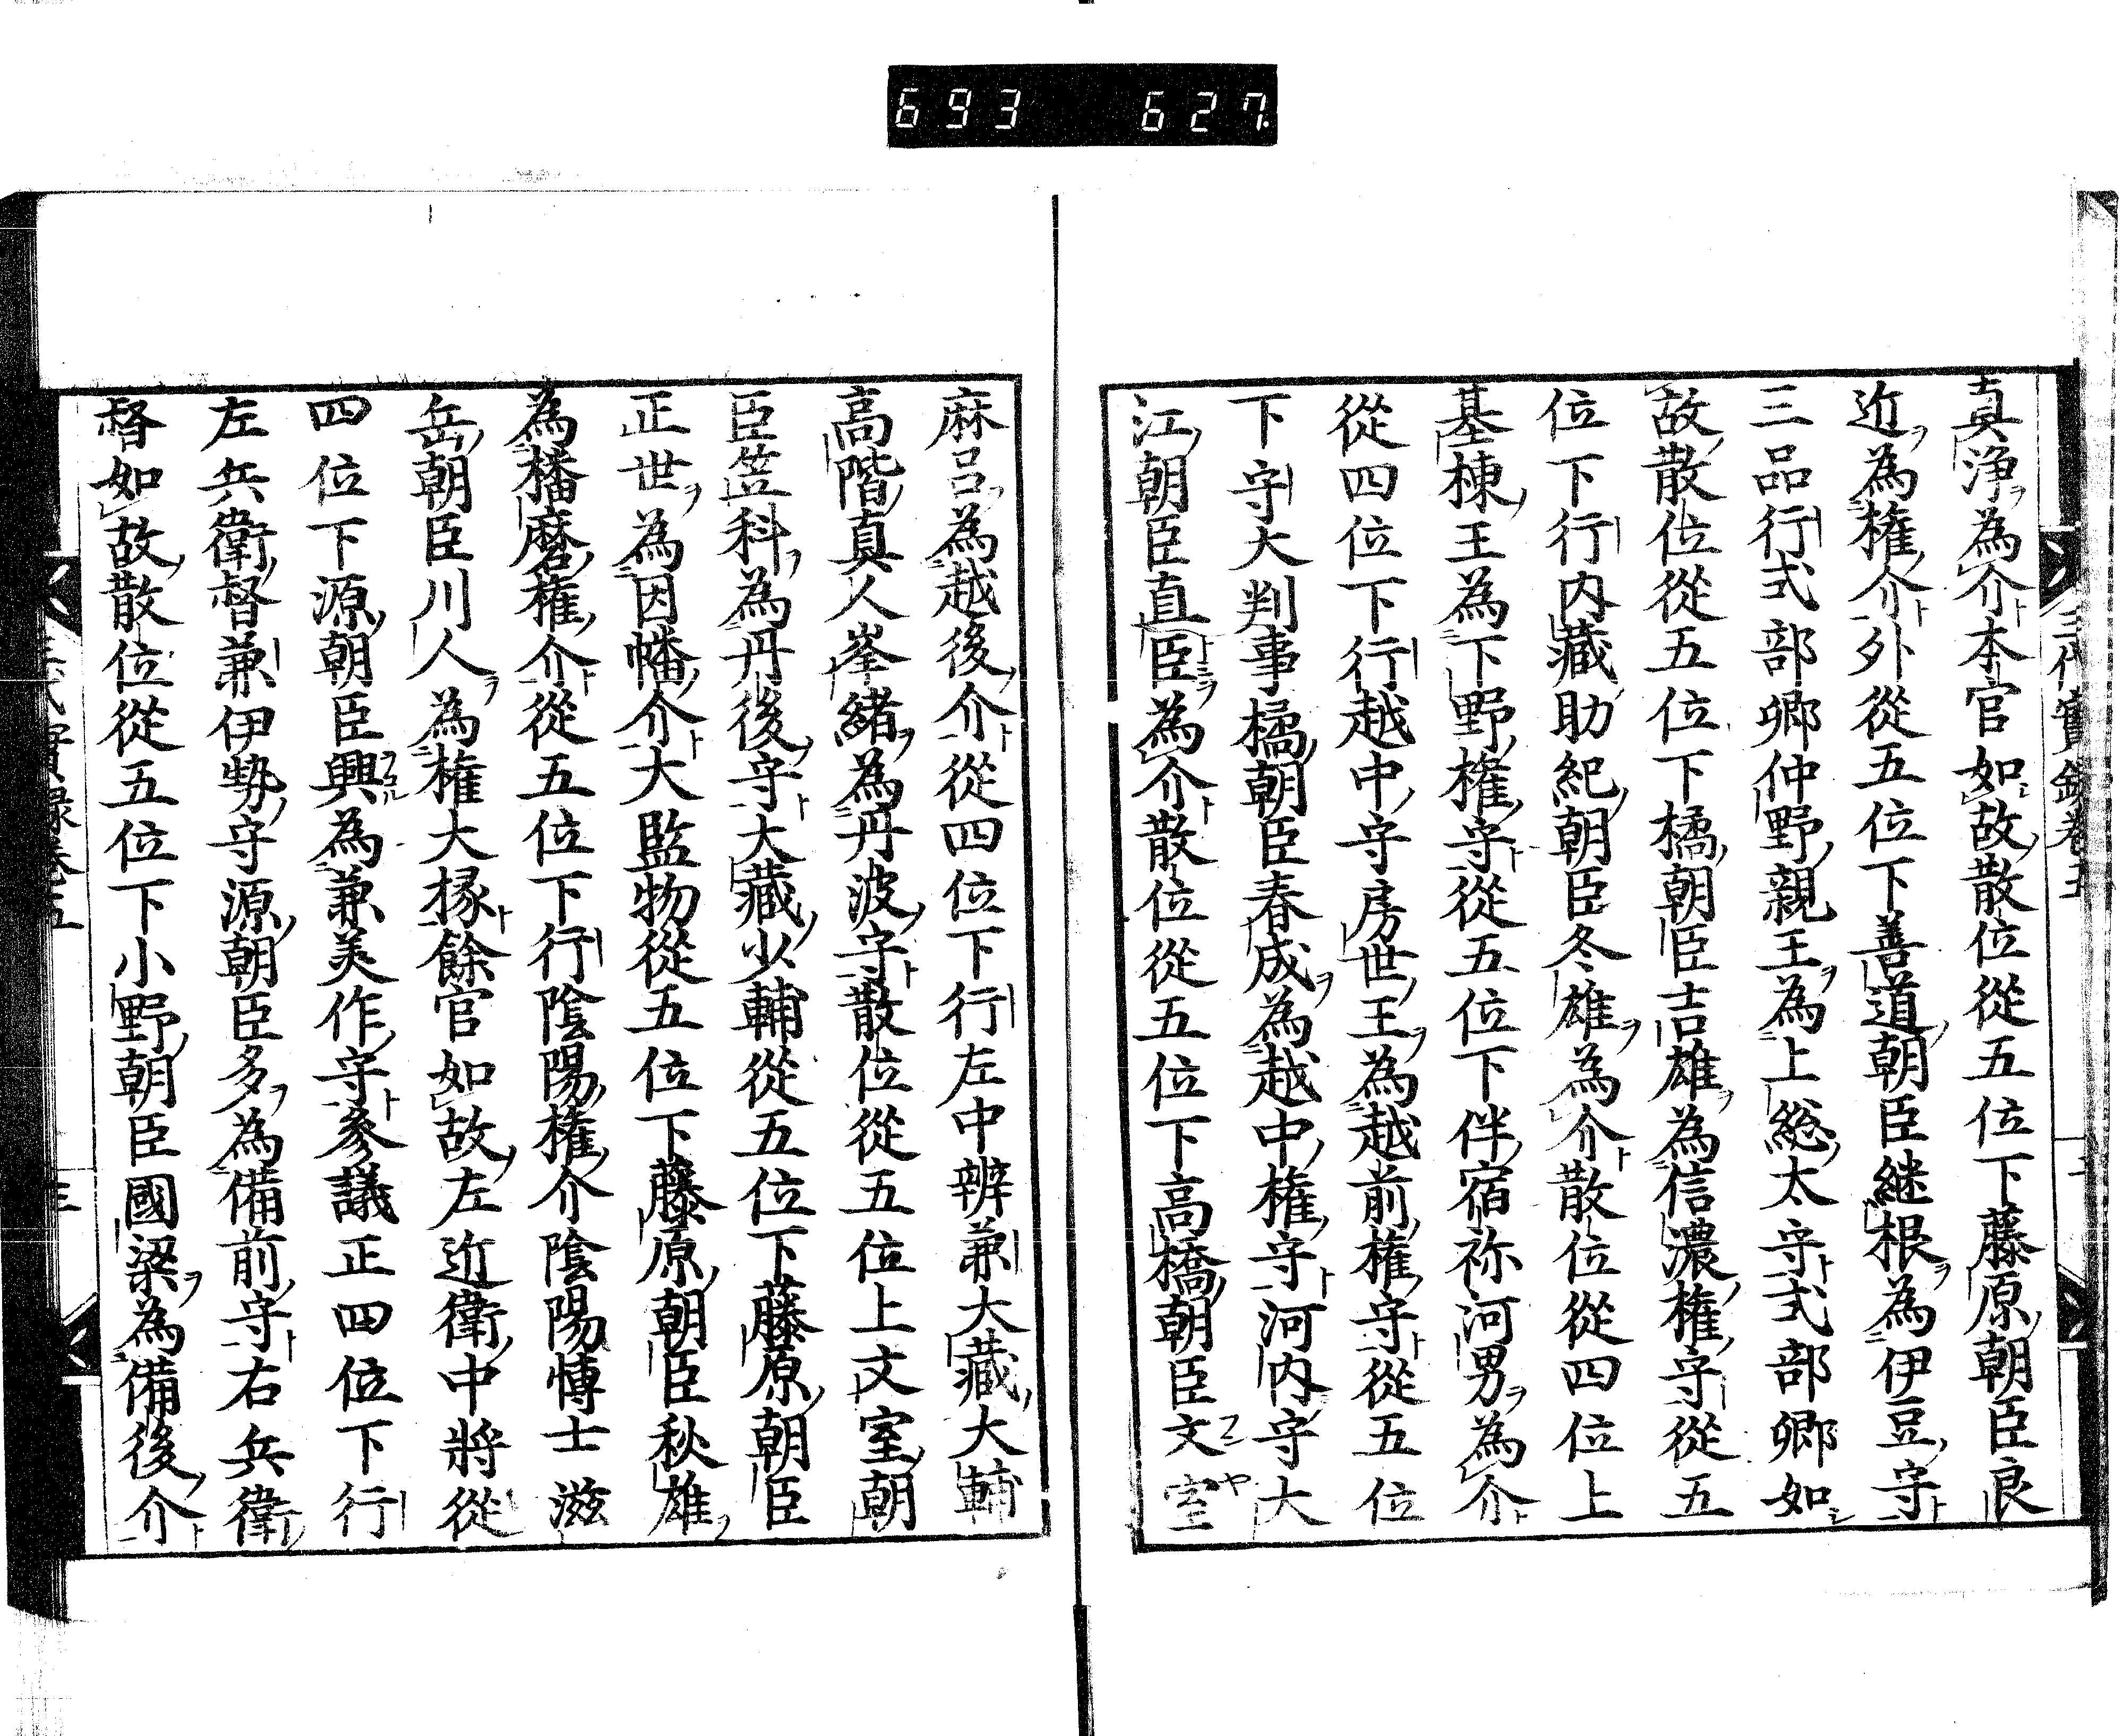 693 627
真浄為介本官如故散位從五位下藤原朝臣良
近為権介外從五位下善道朝臣継根為伊豆守
三品行式部卿仲野親王為上総太守式部卿如
故散位從五位下橘朝臣吉雄為信濃権守從五
位下行内藏助紀朝臣冬雄為介散位從四位上
基棟王為下野権守從五位下伴宿祢河男為介
從四位下行越中守房世王為越前権守從五位
下守大判事橘朝臣春成為越中権守河内守大
江朝臣直臣為介散位從五位下高橋朝臣文室
麻呂為越後介從四位下行左中辨兼大藏大輔
高階真人峯緒為丹波守散位從五位上文室朝
臣笠科為丹後守大藏少輔從五位下藤原朝臣
正世為因幡介大監物從五位下藤原朝臣秋雄
為播磨権介從五位下行陰陽権介陰陽博士滋
岳朝臣川人為権大掾餘官如故左近衛中將從
四位下源朝臣興為兼美作守參議正四位下行
左兵衛督兼伊勢守源朝臣多為備前守右兵衛
督如故散位從五位下小野朝臣國梁為備後介